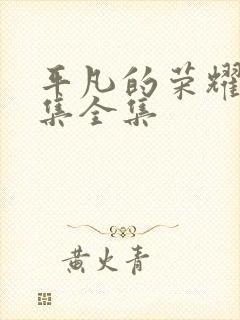 平凡的荣耀
集全集
黄火青